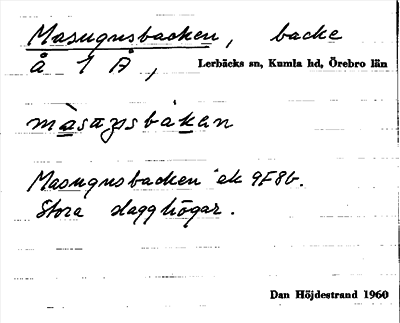 Masugnsbacken, backe
å 1 Å, Lerbäcks sn, Kumla hd, Örebro län
Masugnsbacken ek 9F8b.
Stora slagghögar.
Dan Höjdestrand 1960